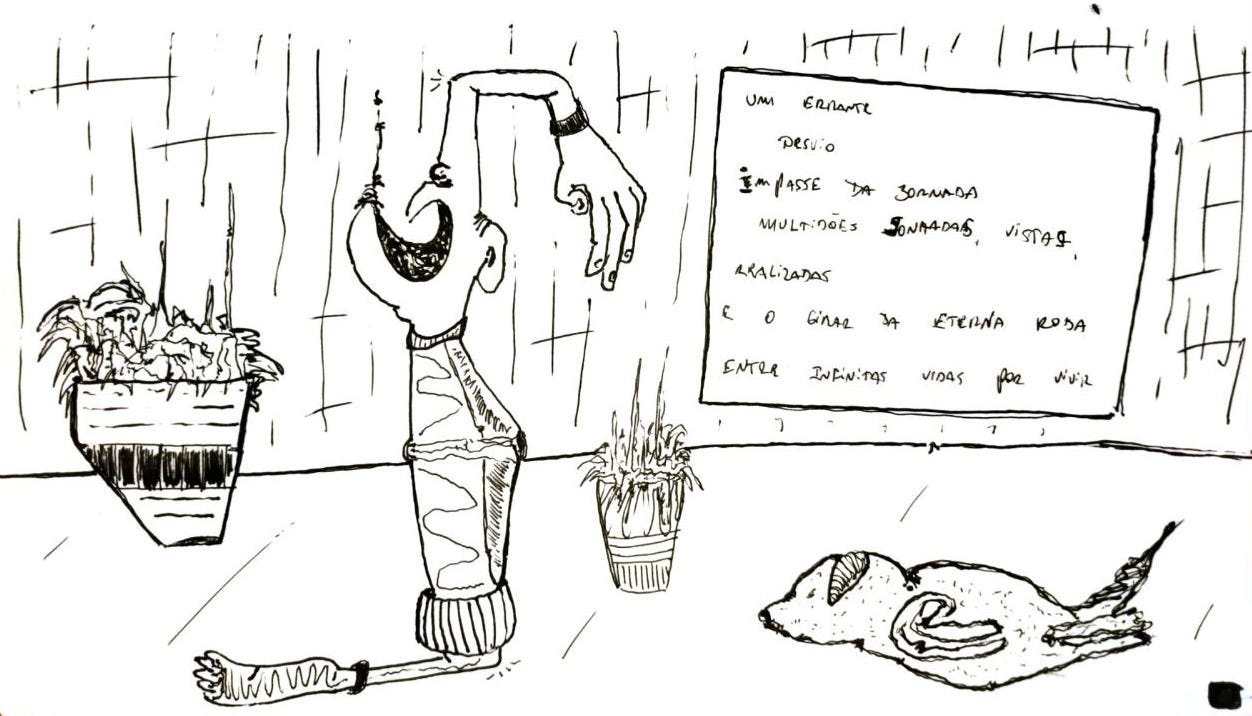 UM ERRANTE
DESVIO
IMPASSE DA JORNADA
MULTIDÕES SONHADAS, VISTAS,
REALIZADAS
E O GIRAR DA ETERNA RODA
ENTRE INFINITAS VIDAS POR VIVIR